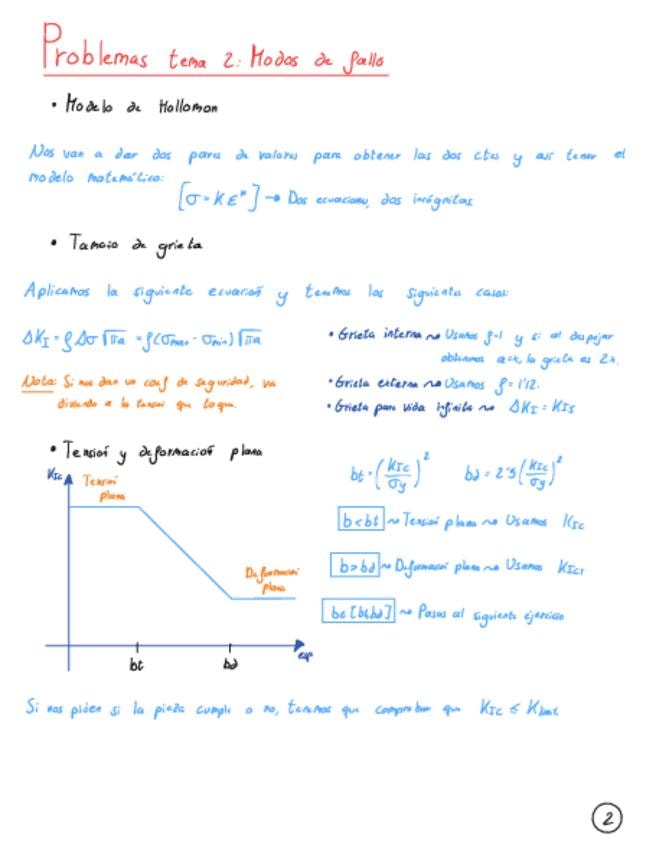 Problemas tema 2: Modos de fallo
• Modelo de Hollomon
Nos van a dar dos pares de valores para obtener las dos ctes y así tener el
modelo matemático:
[σ = K ε^n] → Dos ecuaciones, dos incógnitas
• Tamaño de grieta
Aplicamos la siguiente ecuación y tenemos los siguientes casos:
ΔK_I = ρ Δσ √πa = ρ(σmax - σmin) √πa
Nota: Si nos dan un coef de seguridad, va
dividiendo a la tensión que toque.
• Grieta interna ~ Usamos ρ=1 y si al despejar
obtenemos a=x, la grieta es 2x.
• Grieta externa ~ Usamos ρ = 1'12.
• Grieta para vida infinita ~ ΔK_I = K_IS
• Tensión y deformación plana
K_IC
Tensión
plana
Deformación
plana
bt
bd
esp
bt = (K_IC/σy)^2 bd = 2'5 (K_IC/σy)^2
b < bt ~ Tensión plana ~ Usamos K_IC
b > bd ~ Deformación plana ~ Usamos K_IC1
be [bt,bd] ~ Pasas al siguiente ejercicio
Si nos piden si la pieza cumple o no, tenemos que comprobar que K_IC ≤
2